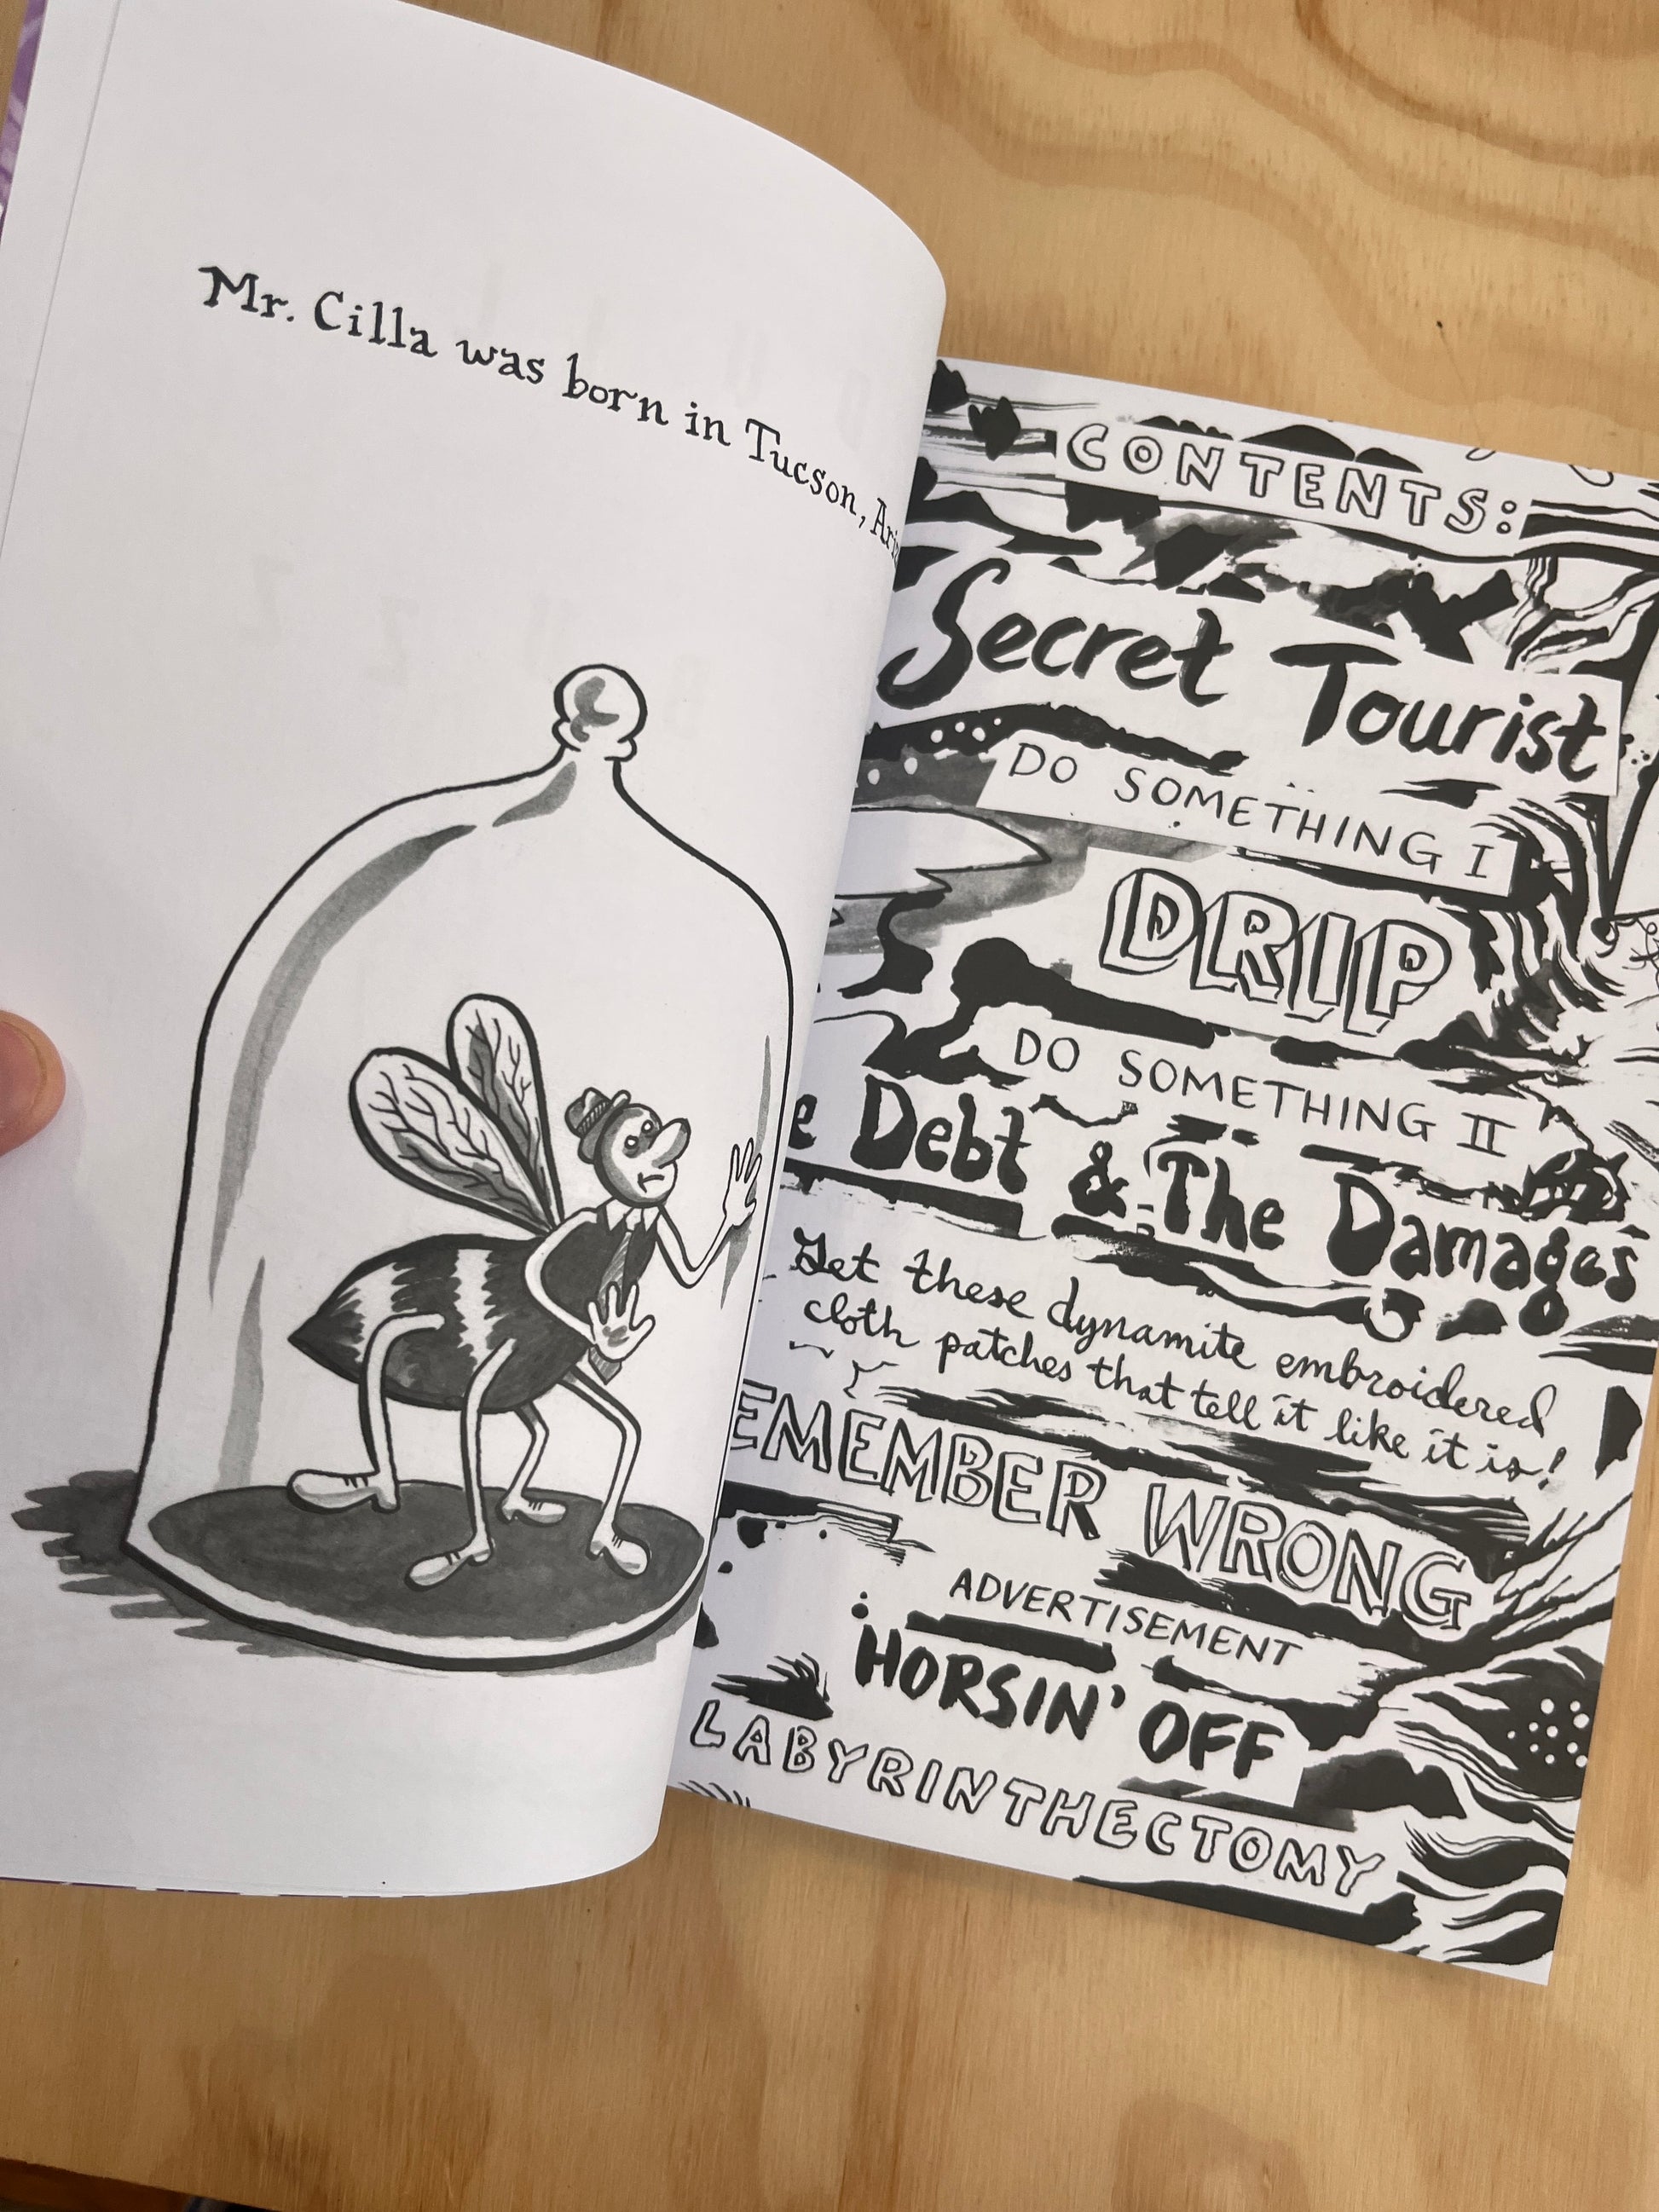 Mr. Cilla was born in Tucson,
CONTENTS:
Secret Tourist
DO SOMETHING I
DRIP
DO SOMETHING II
Debt & The Damages
Get these dynamite embroidered
cloth patches that tell it like it is!
EMEMBER WRONG
ADVERTISEMENT
HORSIN' OFF
LABYRINTHECTOMY